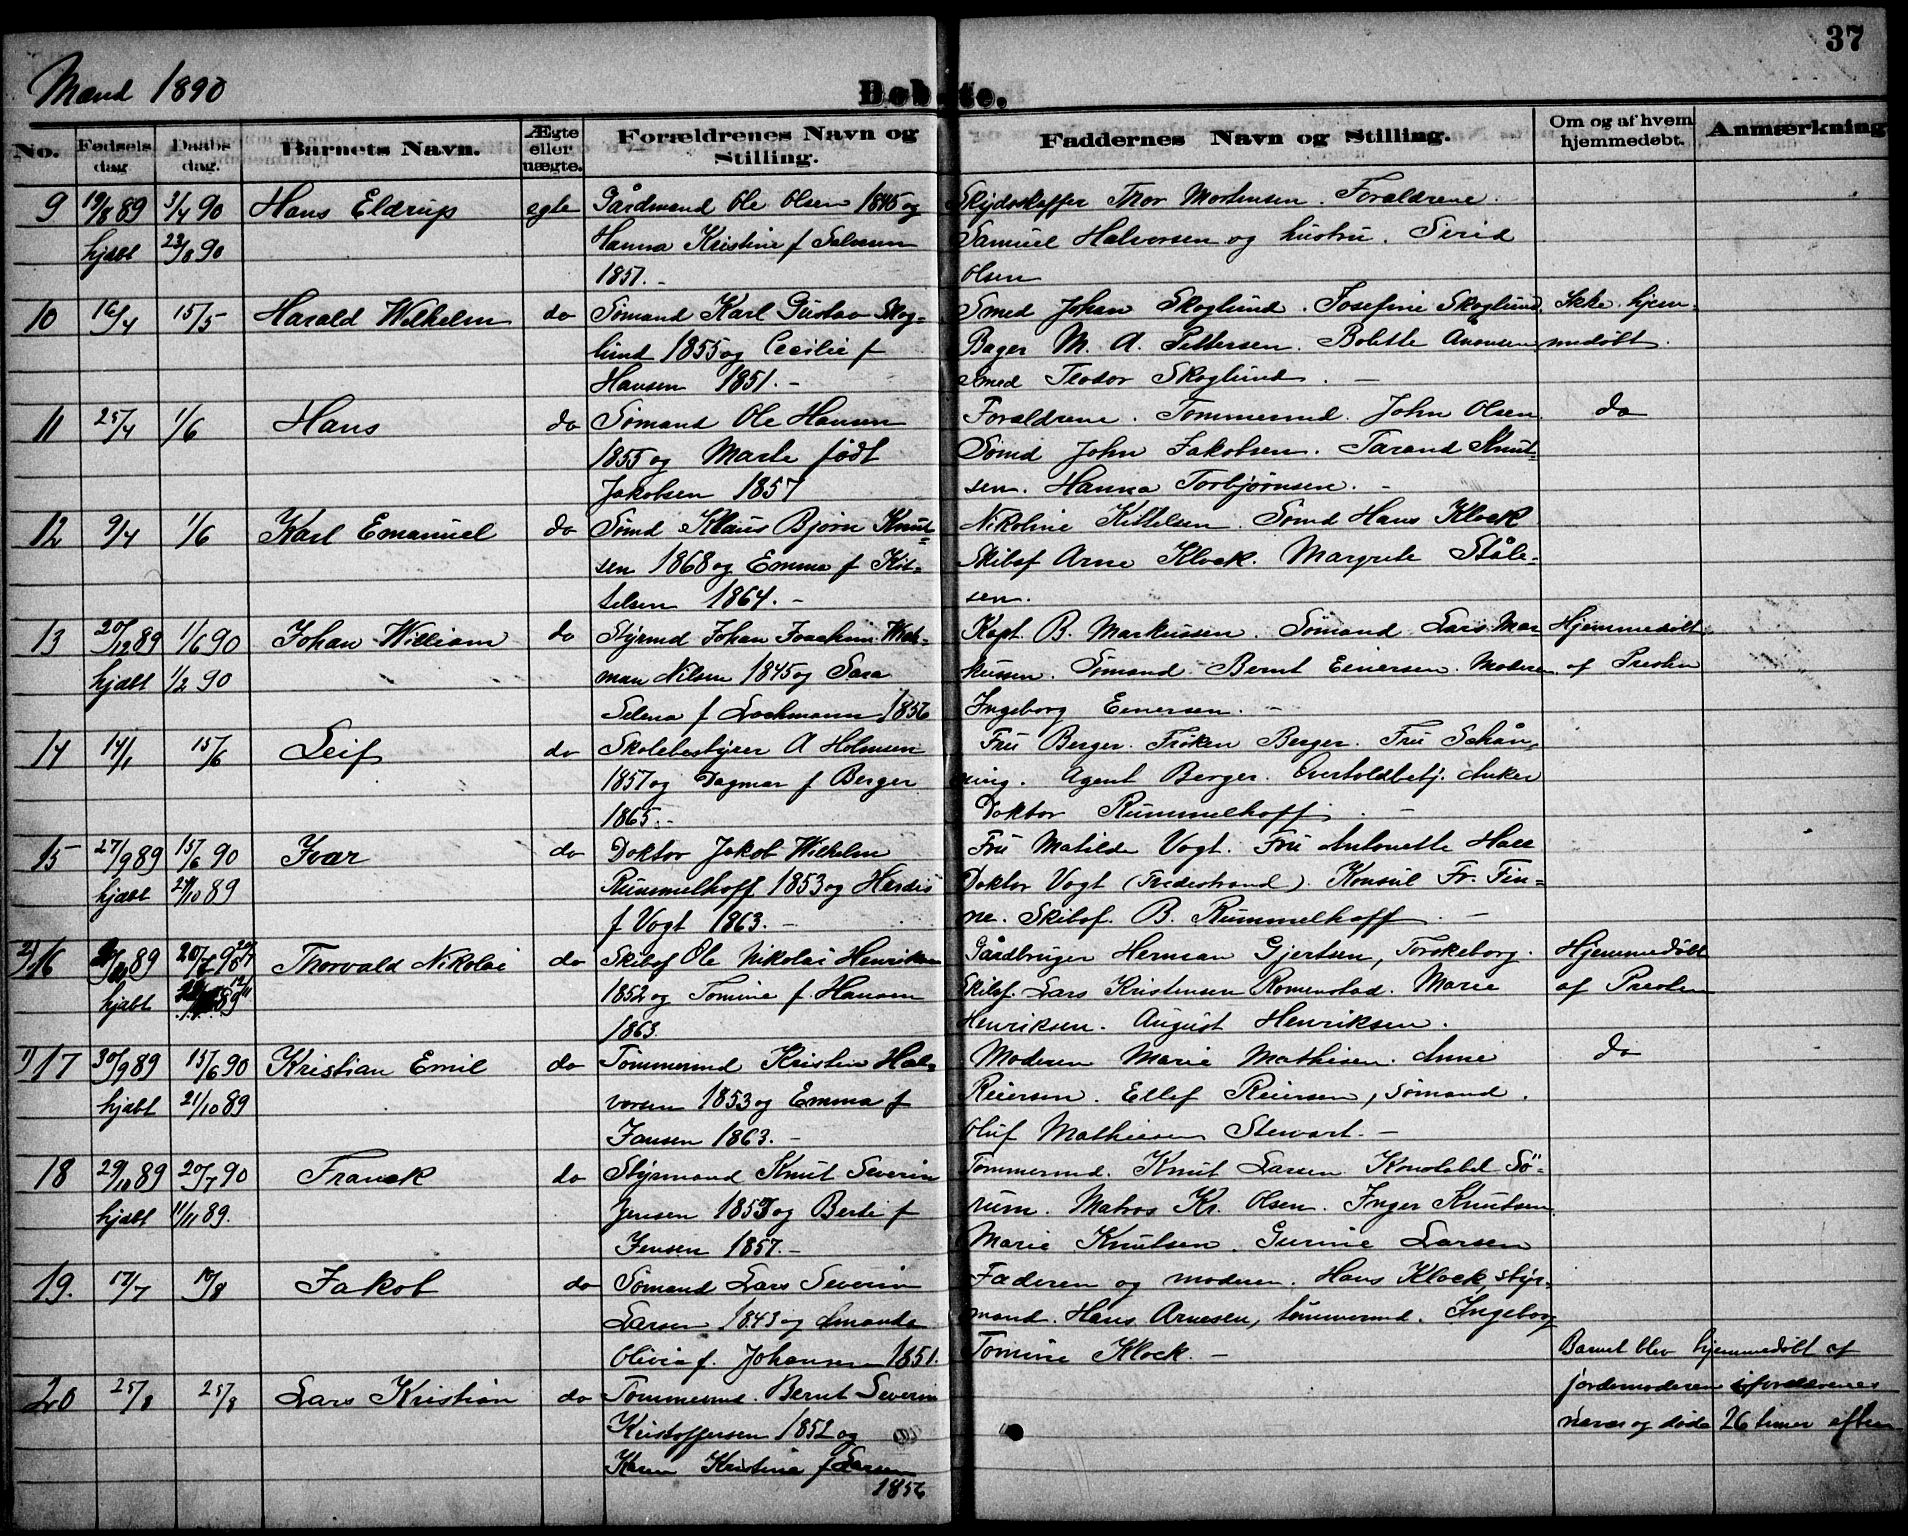 37
Mænd 1890
Døbte.
No. Fødsels dag. Daabs dag. Barnets Navn. Ægte eller uægte. Forældrenes Navn og Stilling. Faddernes Navn og Stilling. Om og af hvem hjemmedøbt. Anmærkning
9 19/8 89 3/4 90 Hans Eldrup egte Gårdmand Ole Olsen 1845 og Skydsskaffer Thor Mortensen. Forældrene.
hjdbt 23/8 90 Hanna Kristine f Salvesen Samuel Halvorsen og hustru. Sirid
1851.- Olsen
10 16/4 15/5 Harald Wilhelm do Sømand Karl Gustav Skog- Smed Johan Skoglund. Josefine Skoglund. Ikke hjem-
lund 1855 og Cecilie f Bager M. A. Pettersen. Bolette Aanonsen medøbt.
Hansen 1851.- Smed Teodor Skoglund.-
11 25/4 1/6 Hans do Sømand Ole Hansen Forældrene. Tømmermd. John Olsen do
1855 og Marte født Sømd John Jakobsen. Tarand Knut-
Jakobsen 1857 sen. Hanna Torbjørnsen.-
12 9/4 1/6 Karl Emanuel do Sømd Klaus Bjørn Knut- Nikoline Kittelsen. Sømd Hans Klock
sen 1868 og Emma f Kit- Skibsf Arne Klock. Margrete Ståle-
telsen 1864.- sen.
13 20/12 89 1/6 90 Johan William do Styrmd Johan Joachim Wed- Kapt. B. Markussen. Sømand Lars Mar Hjemmedøbt
hjdbt 1/2 90 man Nilsen 1845 og Sara kussen. Sømand Bernt Einersen. Moderen. af Presten
Selena f Lochmann 1856 Ingeborg Einersen.-
14 14/1 15/6 Leif do Skolebestyrer A Holmsen Fru Berger. Frøken Berger. Fru Schån-
1857 og Dagmar f Berger ning. Agent Berger. Overtoldbetj. Anker
1865.- Doktor Rummelhoff.-
15 27/9 89 15/6 90 Ivar do Doktor Jakob Wilhelm Fru Matilde Vogt. Fru Antonette Hall
hjdbt 24/10 89 Rummelhoff 1853 og Herdis Doktor Vogt (Tvedestrand). Konsul Fr. Fin-
f Vogt 1863.- ne. Skibsf. B. Rummelhoff.-
2) 16 89 20/7 90 Thorvald Nikolai do Skibsf Ole Nikolai Henriksen Gårdbruger Herman Gjertsen, Torskeborg. Hjemmedøbt
hjdbt 89 1852 og Tomine f. Hansen Skibsf. Lars Kristensen Romenstad. Marie af Presten
1863. Henriksen. August Henriksen.
1) 17 30/9 89 15/6 90 Kristian Emil do Tømmermd Kristen Hal- Moderen Marie Mathisen. Anne do
hjdbt 21/10 89 vorsen 1853 og Emma f Reiersen. Ellef Reiersen, Sømand.
Jansen 1863.- Oluf Mathiesen Stewart.-
18 29/10 89 20/7 90 Franck do Styrmand Knut Severin Tømmermd. Knut Larsen Konstabel Sö-
hjdbt 11/11 89. Jensen 1853 og Berte f rum. Matros Kr. Olsen. Inger Knutsen.
Jensen 1857.- Marie Knutsen. Gurine Larsen
19. 17/7 10/8 Jakob do Sømand Lars Severin Faderen og moderen. Hans Klock, styr-
Larsen 1843 og Amanda mand. Hans Arnesen, tømmermd. Ingeborg
Olivia f. Johansen 1851. Tomine Klock.- Barnet blev hjemmedøbt af
20 25/8 25/8 Lars Kristian do Tømmermd. Bernt Severin jordemoderen i forældrenes
Kristoffersen 1852 og nærvær og døde 26 timer efter.
Karen Kristine f Larsen
1856